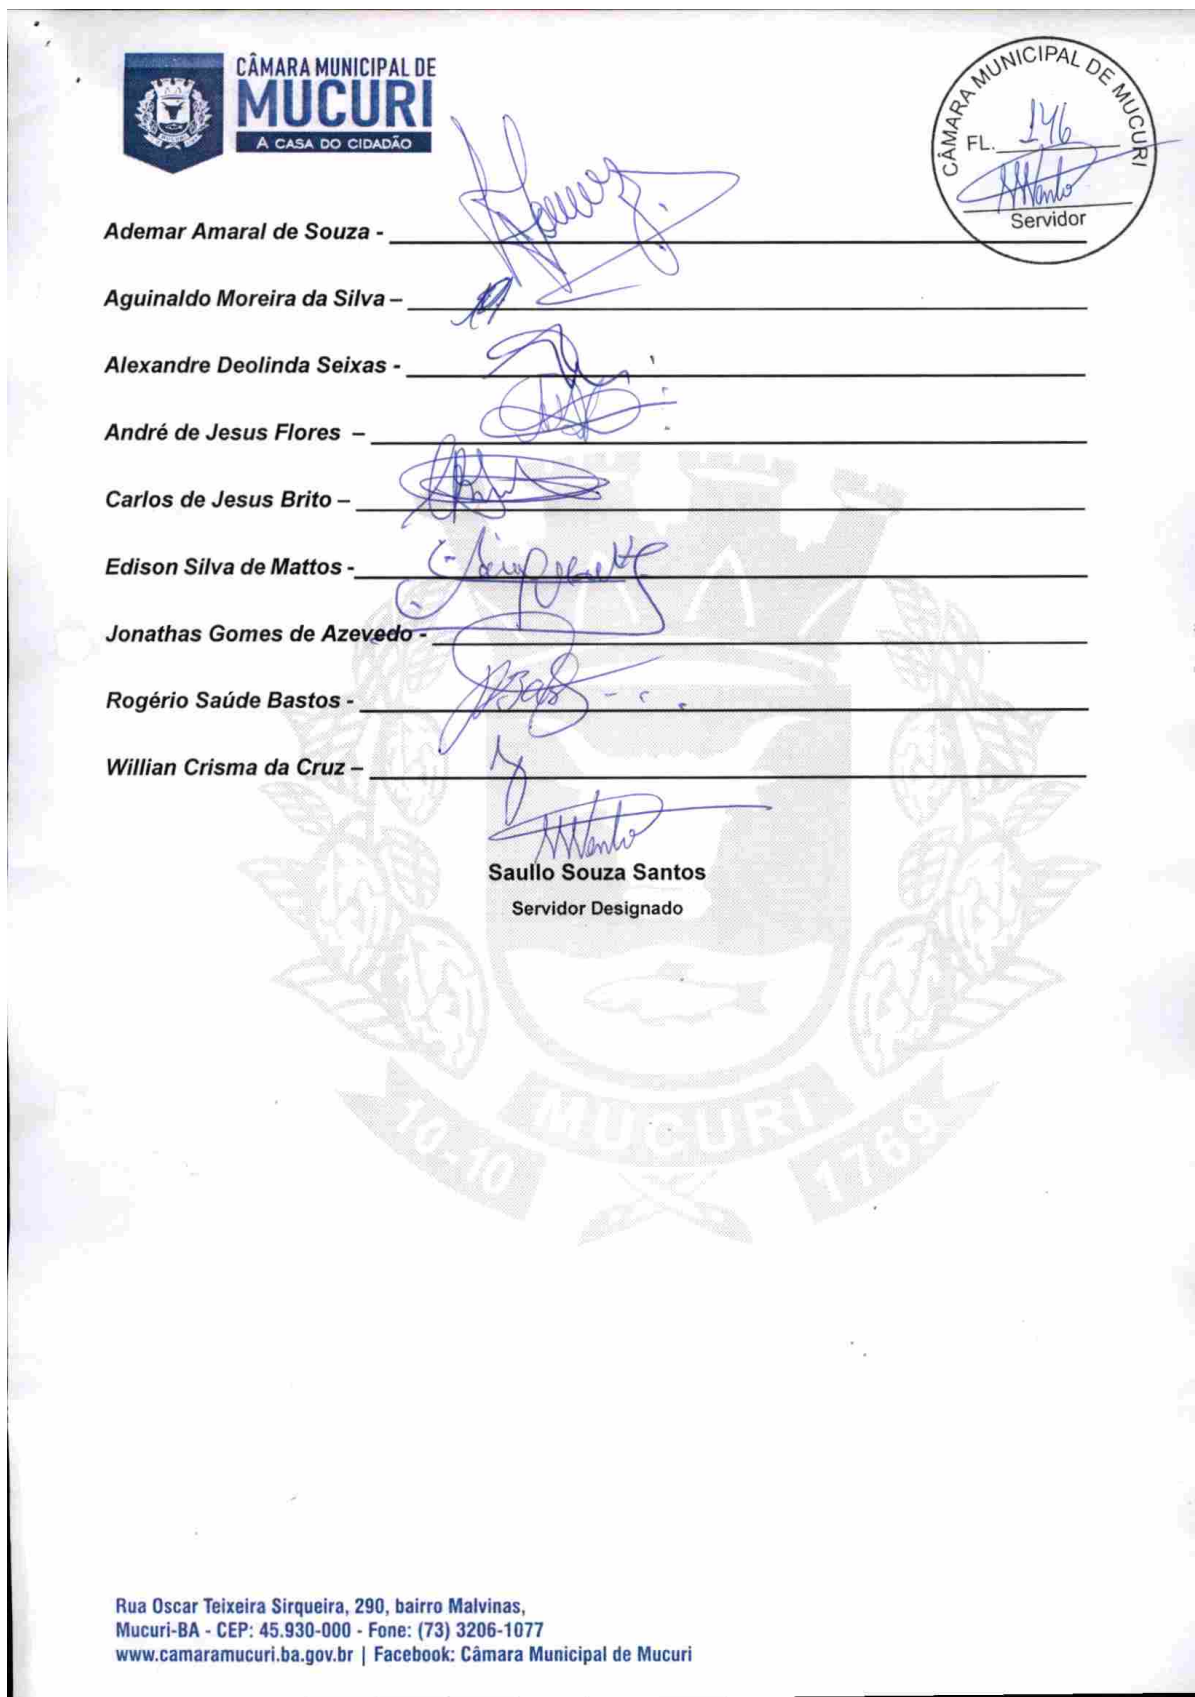 CÂMARA MUNICIPAL DE
MUCURI
A CASA DO CIDADÃO
CÂMARA MUNICIPAL DE MUCURI
FL. 146
Servidor
Ademar Amaral de Souza -
Aguinaldo Moreira da Silva –
Alexandre Deolinda Seixas -
André de Jesus Flores –
Carlos de Jesus Brito –
Edison Silva de Mattos -
Jonathas Gomes de Azevedo -
Rogério Saúde Bastos -
Willian Crisma da Cruz –
Saullo Souza Santos
Servidor Designado
MUCURI
10-10
1769
Rua Oscar Teixeira Sirqueira, 290, bairro Malvinas,
Mucuri-BA - CEP: 45.930-000 - Fone: (73) 3206-1077
www.camaramucuri.ba.gov.br | Facebook: Câmara Municipal de Mucuri